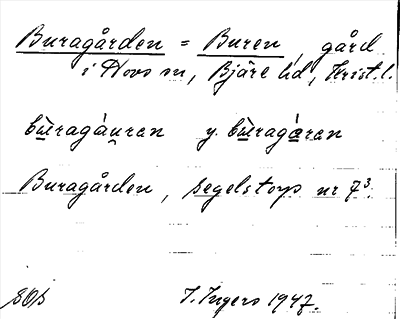 Buragården = Buren, gård
i Hovs sn, Bjäre hd, Krist. l.
bùragáu̯ran y. bùragáran
Buragården, Segelstorp nr 7³.
SOS
I. Ingers 1947.